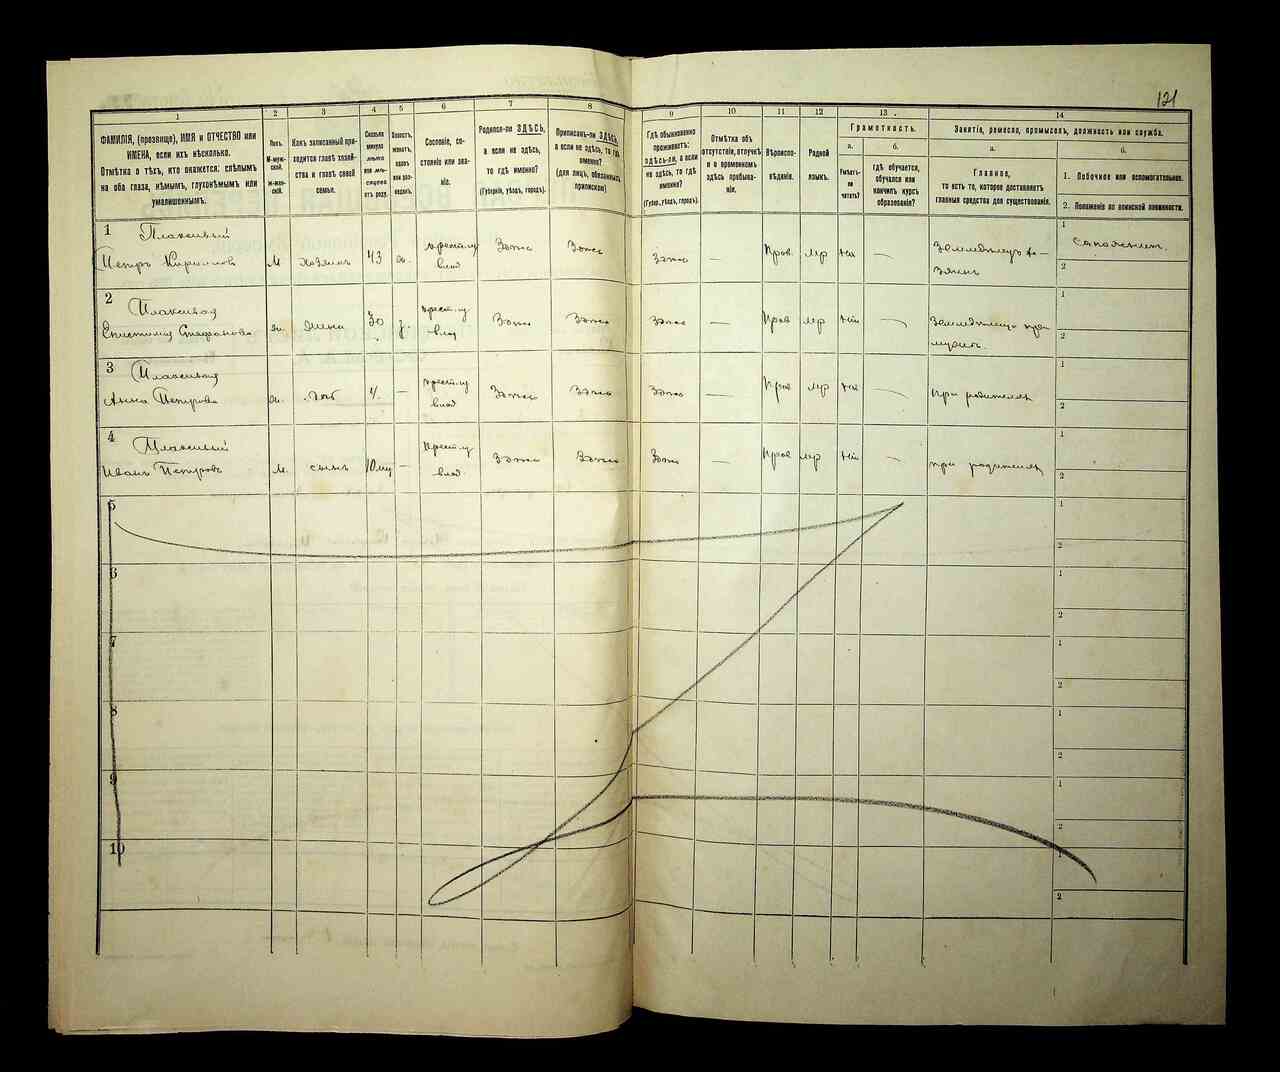 121
1
ФАМИЛІЯ, (прозвище), ИМЯ и ОТЧЕСТВО или
ИМЕНА, если ихъ нѣсколько.
Отмѣтка о тѣхъ, кто окажется: слѣпымъ
на оба глаза, нѣмымъ, глухонѣмымъ или
умалишеннымъ.
2
Полъ.
М-муж-
ской.
Ж-жен-
скій.
3
Какъ записанный при-
ходится главѣ хозяй-
ства и главѣ своей
семьи.
4
Сколько
минуло
лѣтъ
или мѣ-
сяцевъ
отъ роду.
5
Холостъ,
женатъ,
вдовъ
или раз-
веденъ.
6
Сословіе, со-
стояніе или зва-
ніе.
7
Родился-ли ЗДѢСЬ,
а если не здѣсь,
то гдѣ именно?
(Губернія, уѣздъ, городъ).
8
Приписанъ-ли ЗДѢСЬ,
а если не здѣсь, то гдѣ
именно?
(для лицъ, обязанныхъ
припискою)
9
Гдѣ обыкновенно
проживаетъ:
здѣсь-ли, а если
не здѣсь, то гдѣ
именно?
(Губер., уѣздъ, городъ).
10
Отмѣтка объ
отсутствіи, отлучкѣ
и о временномъ
здѣсь пребыва-
ніи.
11
Вѣроиспо-
вѣданіе.
12
Родной
языкъ.
13
Грамотность.
а.
Умѣетъ-
ли
читать?
б.
гдѣ обучается,
обучался или
кончилъ курсъ
образованія?
14
Занятіе, ремесло, промыселъ, должность или служба.
а.
Главное,
то есть то, которое доставляетъ
главныя средства для существованія.
б.
1. Побочное или вспомогательное.
2. Положеніе по воинской повинности.
1 Плаксивый
Петръ Кирилловъ М хозяинъ 43 Здѣсь Здѣсь Здѣсь — Прав. мр нѣт — Земледѣлецъ хо-
зяинъ
1
2
2 Плаксивая
Стефанова ж. жена 30 Здѣсь Здѣсь Здѣсь — Прав мр нѣт —
1
2
3 Плаксивая
Анна Петрова ж. дочь 4. — Здѣсь Здѣсь Здѣсь — Прав мр нѣт — при родителяхъ
1
2
4 Плаксивый
Иванъ Петровъ м. сынъ — Здѣсь Здѣсь Здѣсь — Прав мр нѣт — при родителяхъ
1
2
5
1
2
6
1
2
7
1
2
8
1
2
9
1
2
10
1
2